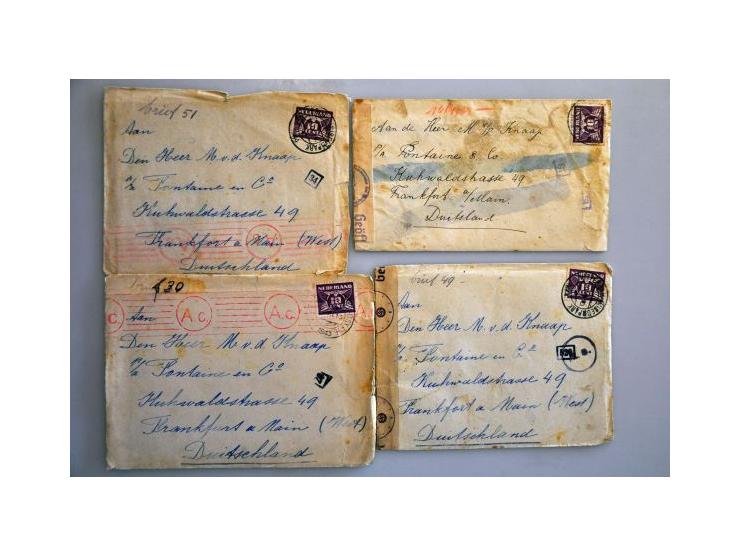 brief 51
NEDERLAND
Aan
Den Heer M.v.d. Knaap
p/a Fontaine en Co
Kuhwaldstrasse 49
Frankfort a Main (West)
Duitschland
NEDERLAND
Aan de Heer M v/d Knaap
p/a Fontaine & Co.
Kuhwaldstrasse 49
Frankfort a/Main.
Duitsland
Geöff
430
NEDERLAND
A.c.
A.c.
Aan
Den Heer M.v.d. Knaap
p/a Fontaine en Co
Kuhwaldstrasse 49
Frankfort a Main (West)
Duitschland
brief 49
Aan
Den Heer M.v.d. Knaap
p/a Fontaine en Co
Kuhwaldstrasse 49
Frankfort a Main (West)
Duitschland